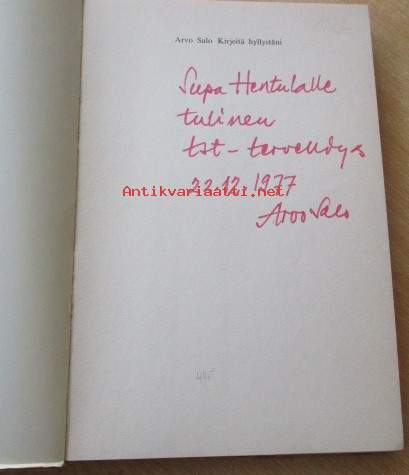 Arvo Salo Kirjeitä hyllystäni
Supa Hentulalle
tulinen
tst-tervehdys
Antikvariaatti.net
22.12.1977
Arvo Salo